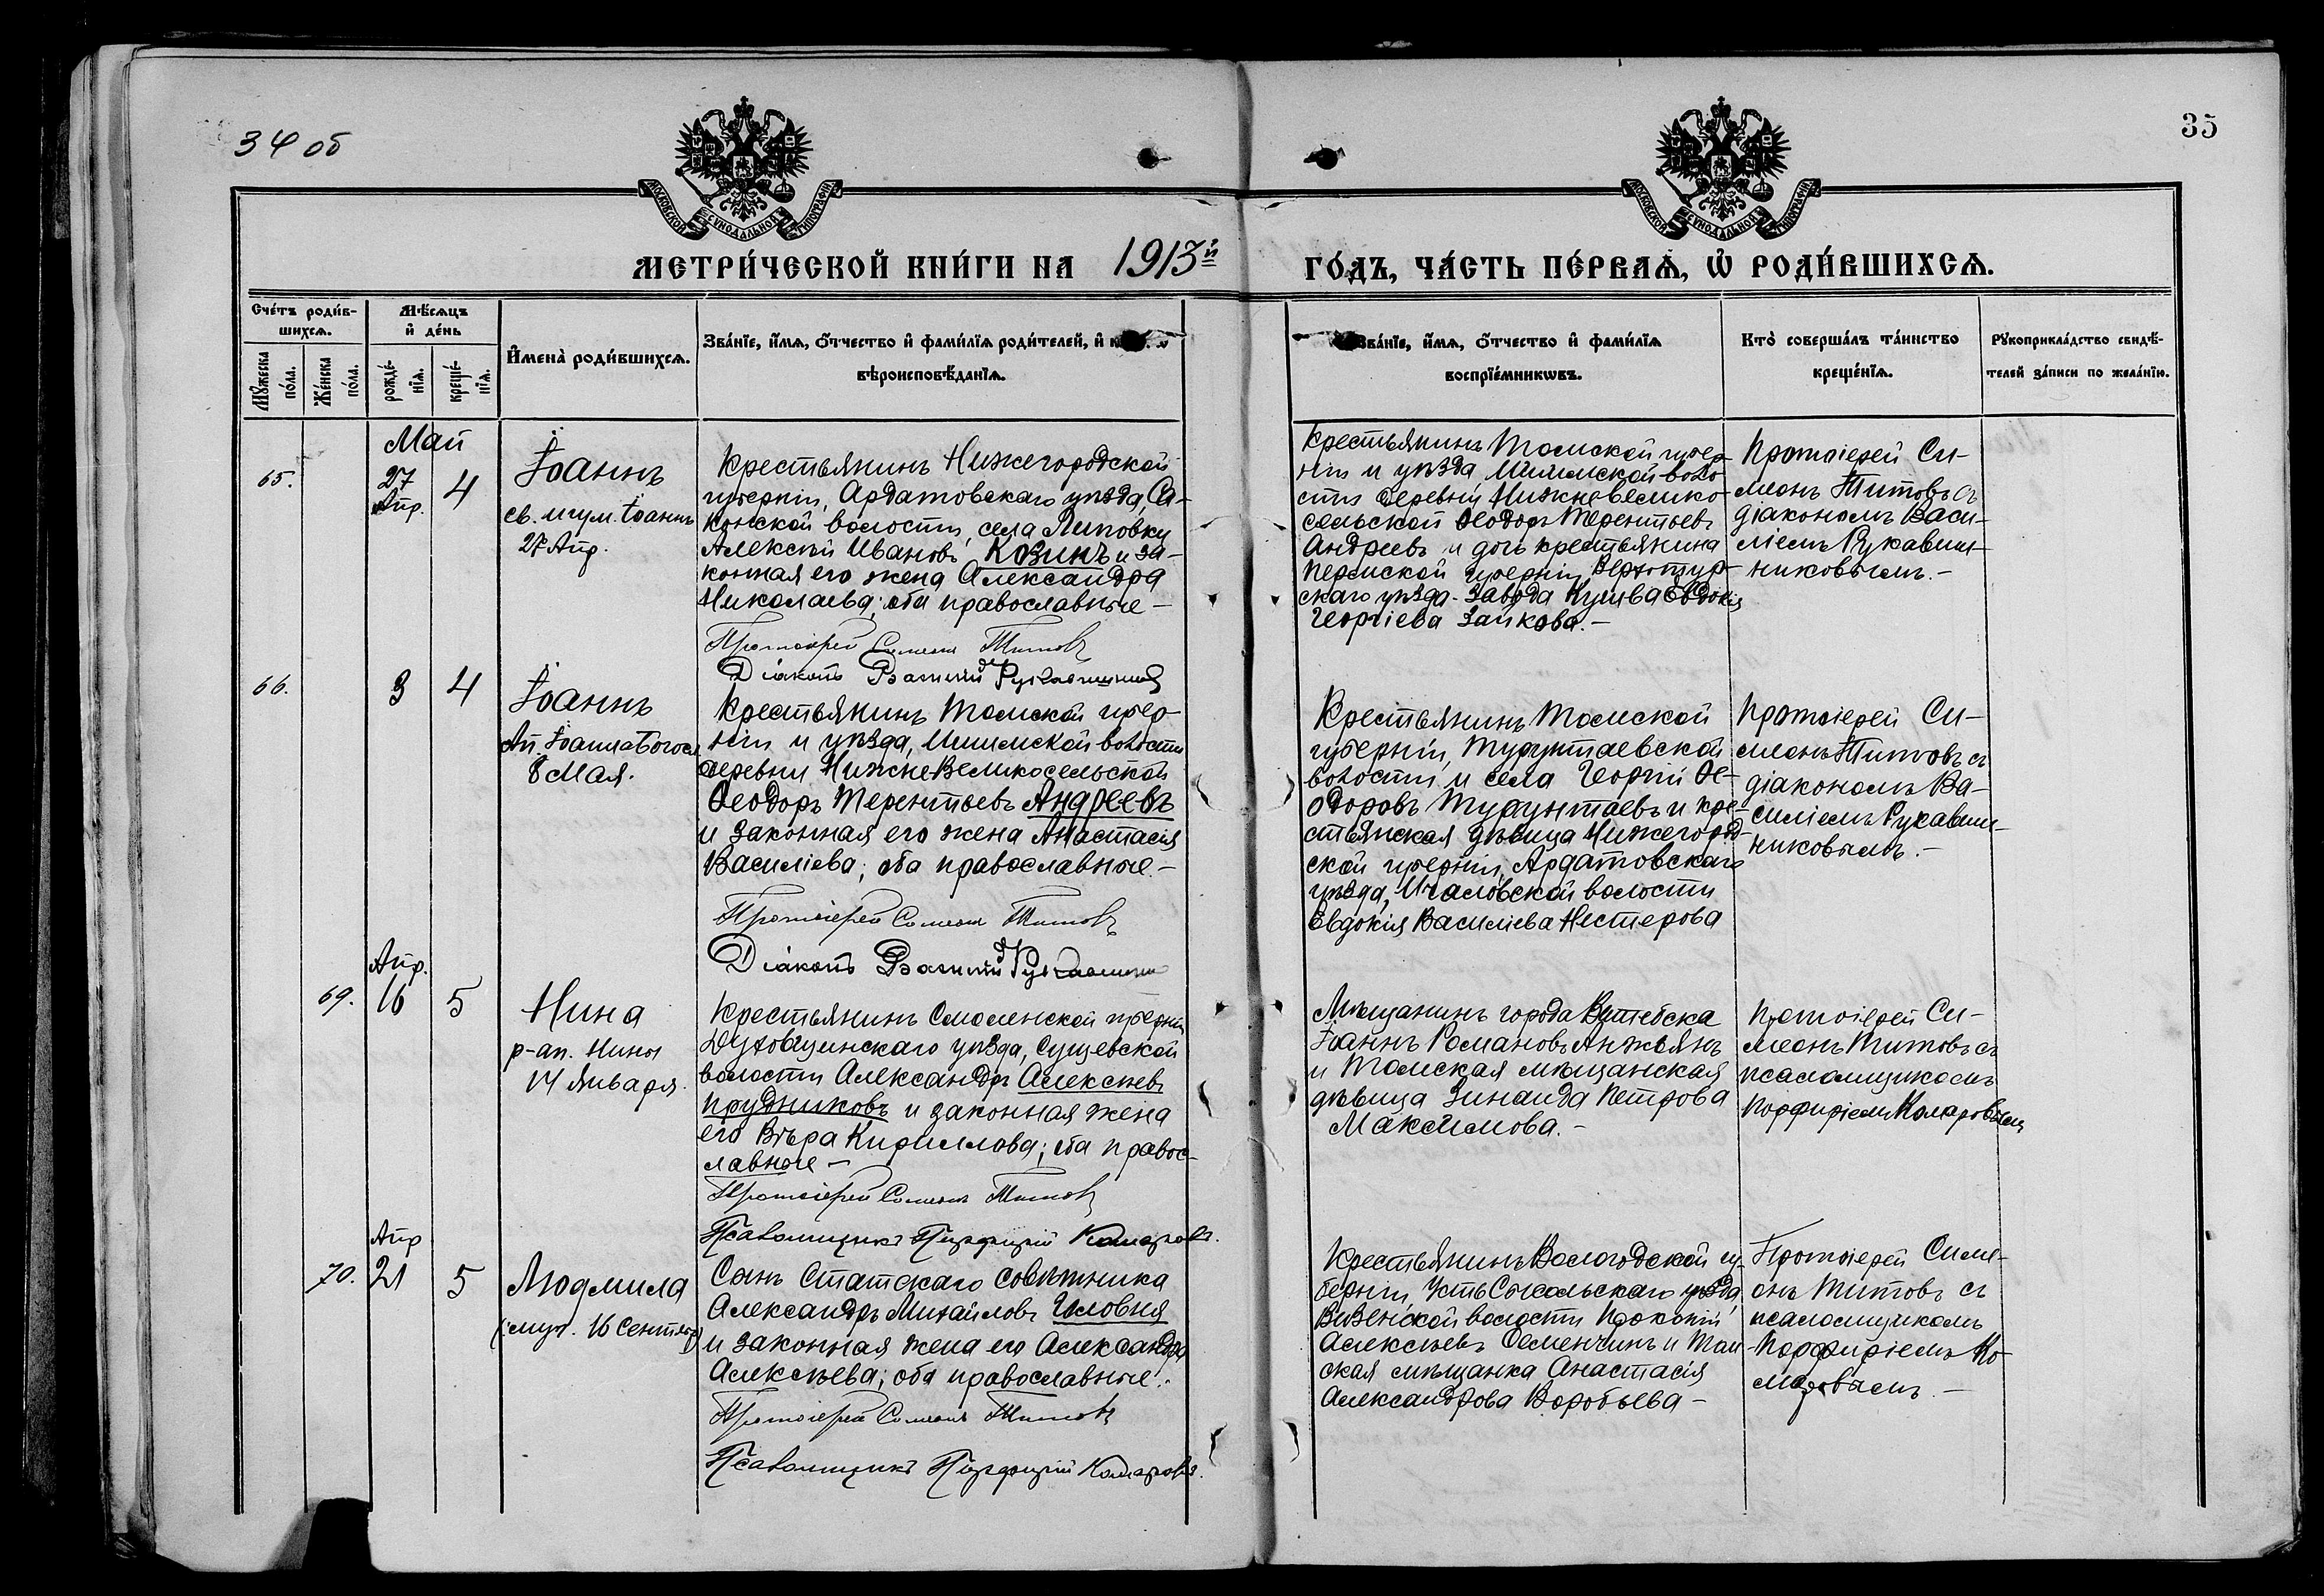 34 об
35
МОСКОВСКОЙ СѴНОДАЛЬНОЙ ТИПОГРАФІИ
МОСКОВСКОЙ СѴНОДАЛЬНОЙ ТИПОГРАФІИ
МЕТРИ́ЧЕСКОЙ КНИ́ГИ НА 1913й ГО́ДЪ, ЧА́СТЬ ПЕ́РВАѦ, Ѡ҆ РОДИ́ВШИХСѦ.
Сче́тъ роди́в-
шихсѧ.
Мꙋ́жеска
по́ла.
Же́нска
по́ла.
Мѣ́сѧцъ
и҆ де́нь
рожде́-
нїѧ.
креще́-
нїѧ.
И҆мена̀ роди́вшихсѧ.
Зва́нїе, и҆́мѧ, ѻ҆́тчество и҆ фами́лїѧ роди́телей, и҆
вѣроисповѣ́данїѧ.
Зва́нїе, и҆́мѧ, ѻ҆́тчество и҆ фами́лїѧ
воспрїе́мникѡвъ.
Кто̀ соверша́лъ та́инство
креще́нїѧ.
Рꙋкоприкла́дство свидѣ́-
телей за́писи по жела́нїю.
Май
65.
27
Апр.
4
Іоаннъ
св. муч. Іоанна
27 Апр.
Крестьянинъ Нижегородской
губерніи, Ардатовскаго уѣзда, Са-
конской волости, села Липовки
Алексѣй Ивановъ Козинъ и за-
конная его жена Александра
Николаева; оба православные –
Протоіерей Симеонъ Титовъ
Діаконъ Василій Рукавишниковъ
Крестьянинъ Томской губер-
ніи и уѣзда Ишимской воло-
сти деревни Нижневелико-
сельской Ѳеодоръ Терентьевъ
Андреевъ и дочь крестьянина
Пермской губерніи, Верхотур-
скаго уѣзда – завода Кушва Евдокія
Георгіева Зайкова. –
Протоіерей Си-
меонъ Титовъ съ
діакономъ Васи-
ліемъ Рукавиш-
никовымъ. –
66.
3
4
Іоаннъ
Ап. Іоанна Богосл.
8 Мая.
Крестьянинъ Томской губер-
ніи и уѣзда, Ишимской волости
деревни НижнеВеликосельской
Ѳеодоръ Терентьевъ Андреевъ
и законная его жена Анастасія
Василіева; оба православные. –
Протоіерей Симеонъ Титовъ
Діаконъ Василій Рукавишниковъ
Крестьянинъ Томской
губерніи, Турунтаевской
волости и села Георгій Ѳе-
одоровъ Турунтаевъ и кре-
стьянская дѣвица Нижегород-
ской губерніи, Ардатовскаго
уѣзда, Ичаловской волости
Евдокія Василіева Нестерова
Протоіерей Си-
меонъ Титовъ съ
діакономъ Ва-
силіемъ Рукавиш-
никовымъ. –
69.
Апр.
16
5
Нина
р-ап. Нины
14 Января.
Крестьянинъ Смоленской губерніи
Духовщинскаго уѣзда, Сущевской
волости Александръ Алексѣевъ
Прудниковъ и законная жена
его Вѣра Кириллова; оба правос-
лавные –
Протоіерей Симеонъ Титовъ
Псаломщикъ Порфирій Комаровъ.
Мѣщанинъ города Витебска
Іоаннъ Романовъ Анжьянъ
и Томская мѣщанская
дѣвица Зинаида Петрова
Максимова. –
Протоіерей Си-
меонъ Титовъ съ
псаломщикомъ
Порфиріемъ Комаровымъ
70.
Апр
21
5
Людмила
(муч. 16 Сентяб.)
Сынъ Статскаго совѣтника
Александръ Михайловъ Иловня
и законная жена его Александра
Алексѣева; оба православные.
Протоіерей Симеонъ Титовъ
Псаломщикъ Порфирій Комаровъ.
Крестьянинъ Вологодской гу-
берніи, УстьСысольскаго уѣзда,
Визенской волости Прокопій
Алексѣевъ Семенчинъ и Том-
ская мѣщанка Анастасія
Александрова Воробьева –
Протоіерей Симе-
онъ Титовъ съ
псаломщикомъ
Порфиріемъ Ко-
маровымъ. –